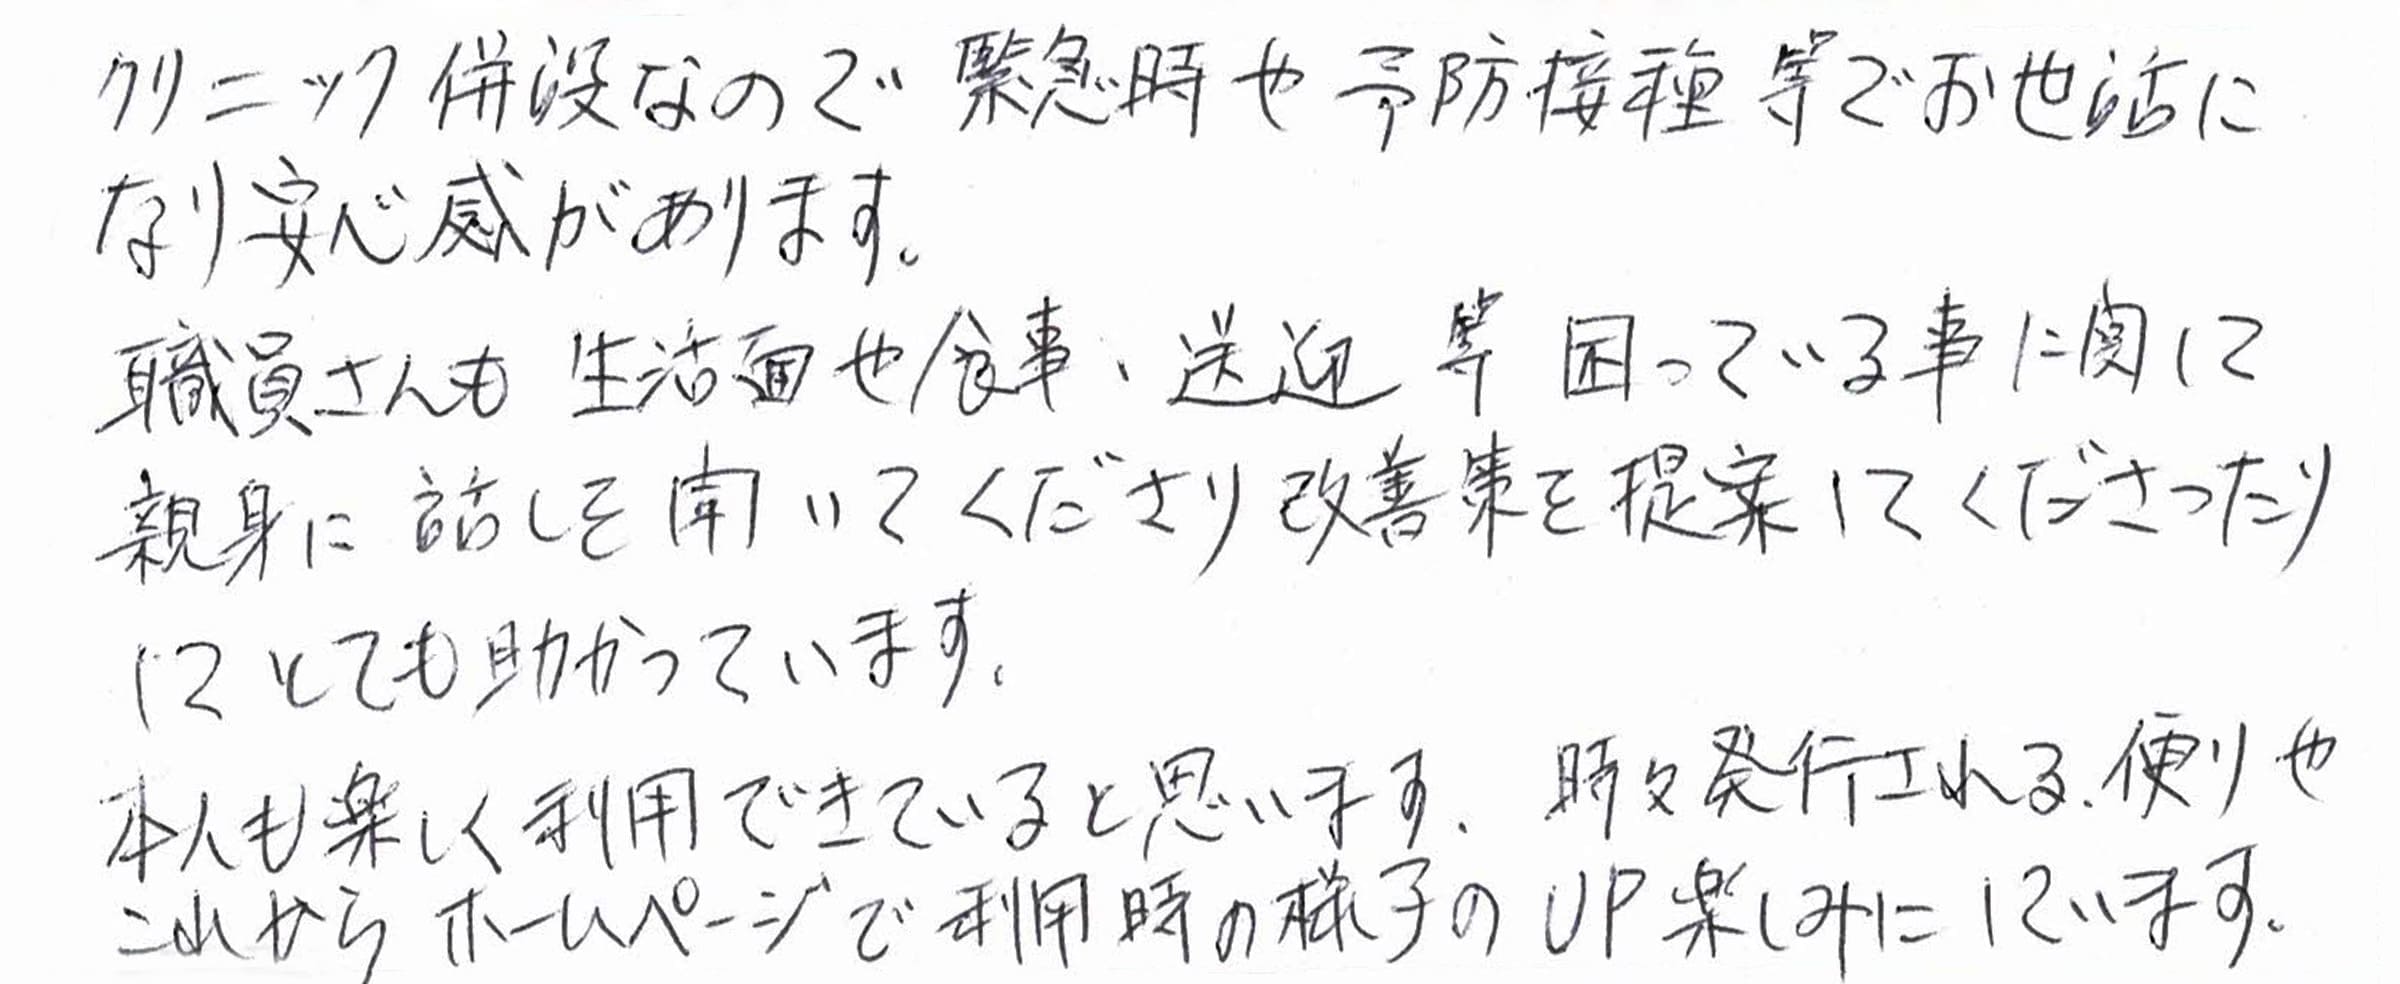 クリニック併設なので緊急時や予防接種等でお世話に
なり安心感があります。
職員さんも生活面や食事、送迎等困っている事に関して
親身に話しを聞いてくださり改善策を提案してくださったり
してとても助かっています。
本人も楽しく利用できていると思います。時々発行される、便りや
これからホームページで利用時の様子のUP楽しみにしています。